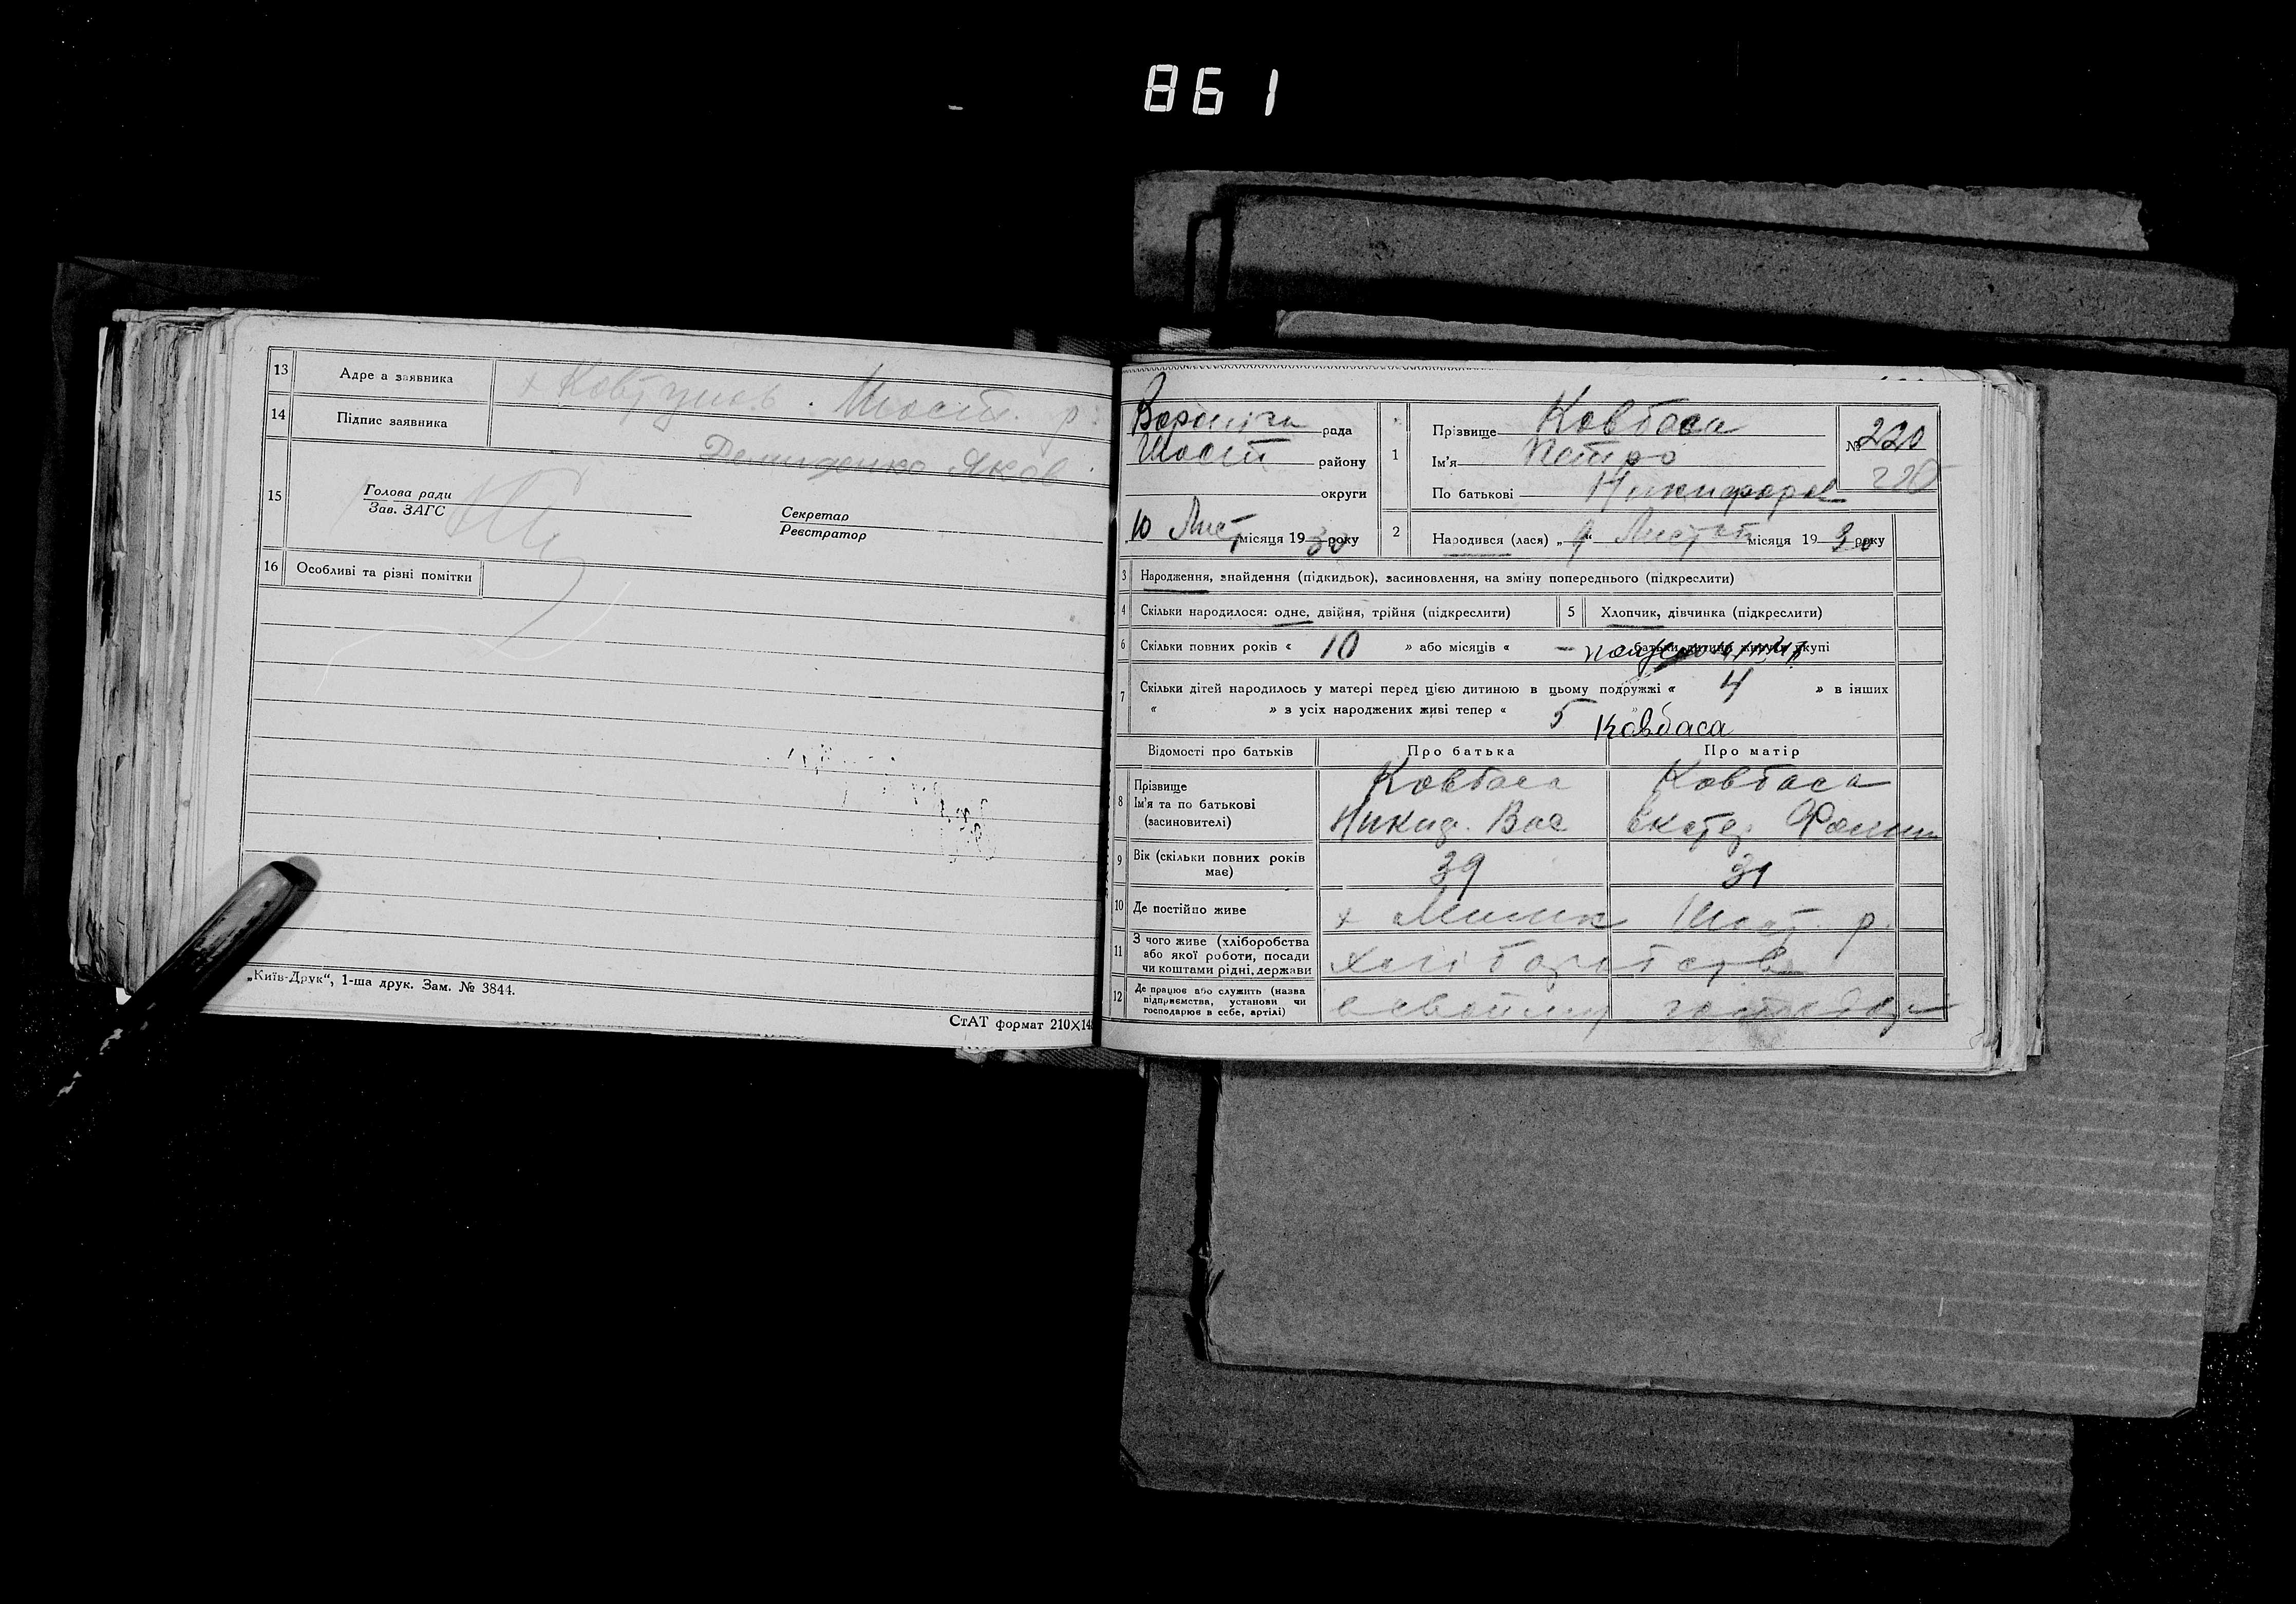 861
13 Адре а заявника х Ковтунь. Шост. р.
14 Підпис заявника
Демиденко Яков
15 Голова ради
Зав. ЗАГС
Секретар
Реєстратор
16 Особливі та різні помітки
„Київ-Друк“, 1-ша друк. Зам. № 3844.
СтАТ формат 210×14
рада
Шост району
округи
10 Лист місяця 1930 року
1 Прізвище Ковбаса
Ім'я Петро
По батькові Никифоров
№ 220
220
2 Народився (лася) „9“ Листоп місяця 1930 року
3 Народження, знайдення (підкидьок), засиновлення, на зміну попереднього (підкреслити)
4 Скільки народилося: одне, двійня, трійня (підкреслити)
5 Хлопчик, дівчинка (підкреслити)
6 Скільки повних років « 10 » або місяців « — батьки дитини живуть укупі
7 Скільки дітей народилось у матері перед цією дитиною в цьому подружжі « 4 » в інших
« » з усіх народжених живі тепер « 5
Ковбаса
Відомості про батьків Про батька Про матір
8 Прізвище Ковбаса Ковбаса
Ім'я та по батькові
(засиновителі) Никиф. Вас Екатер
9 Вік (скільки повних років має) 39 31
10 Де постійно живе х Шост. р.
11 З чого живе (хліборобства
або якої роботи, посади
чи коштами рідні, держави
хліборобство
12 Де працює або служить (назва
підприємства, установи чи
господарює в себе, артілі)